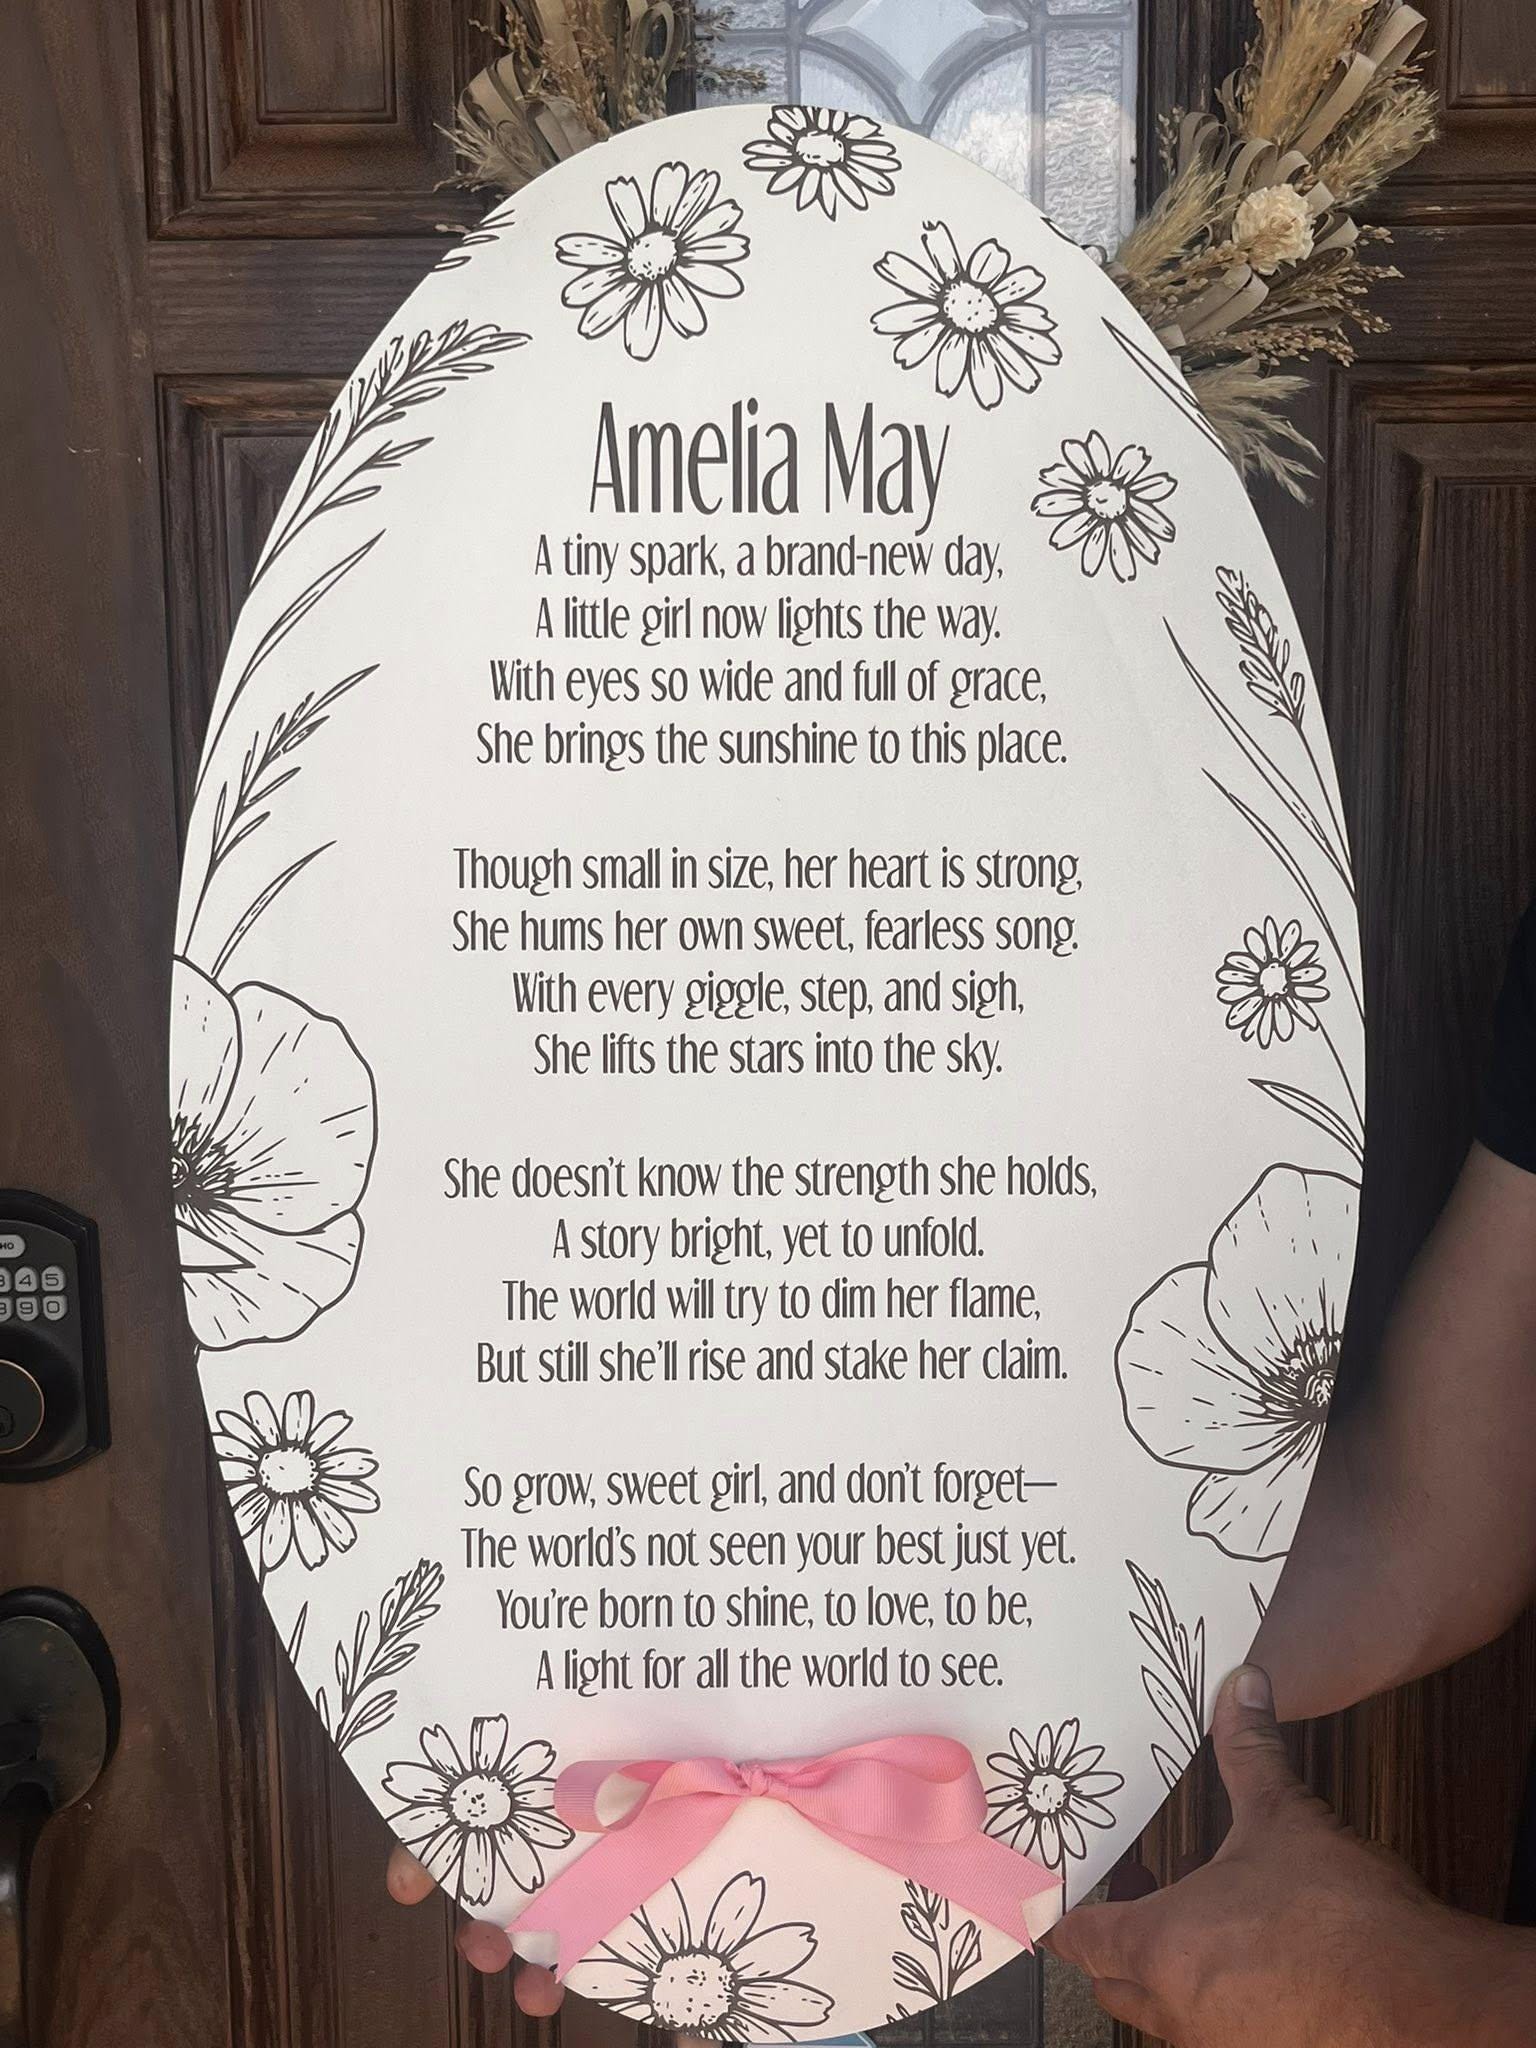 Amelia May
A tiny spark, a brand-new day,
A little girl now lights the way.
With eyes so wide and full of grace,
She brings the sunshine to this place.
Though small in size, her heart is strong,
She hums her own sweet, fearless song.
With every giggle, step, and sigh,
She lifts the stars into the sky.
She doesn't know the strength she holds,
A story bright, yet to unfold.
The world will try to dim her flame,
But still she'll rise and stake her claim.
So grow, sweet girl, and don't forget—
The world's not seen your best just yet.
You're born to shine, to love, to be,
A light for all the world to see.
3 4 5
8 9 0